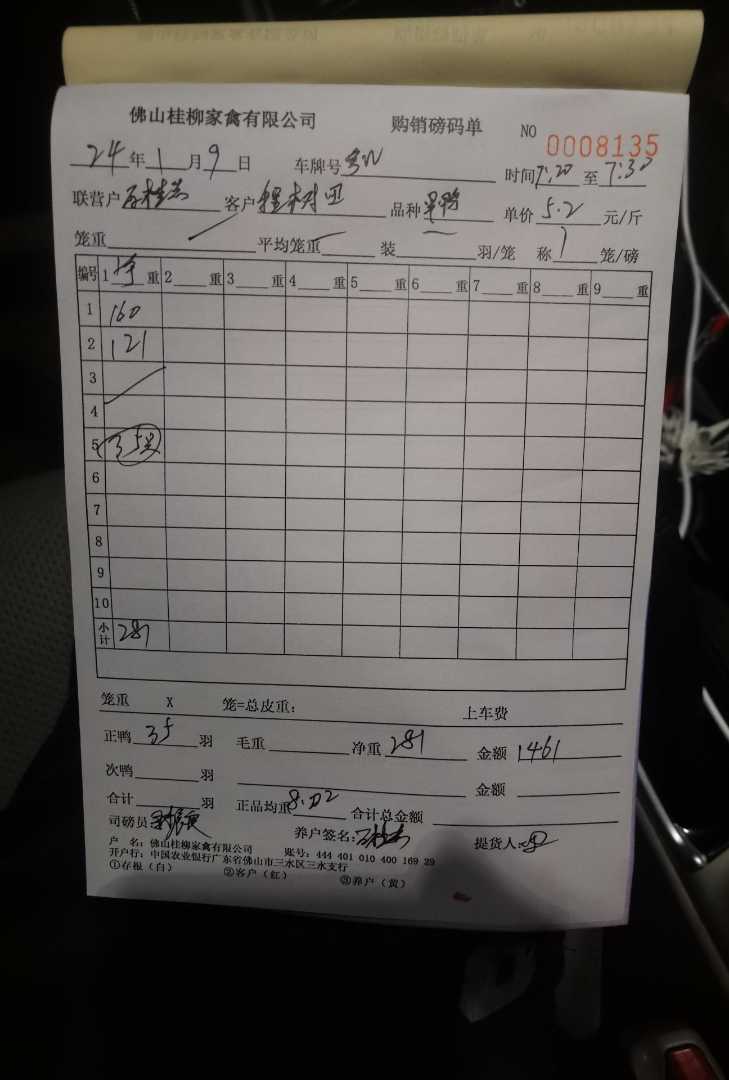 佛山桂柳家禽有限公司 购销磅码单 NO 0008135
24年1月9日 车牌号 时间7:20至7:30
联营户 客户 品种 单价5.2元/斤
笼重 平均笼重 装 羽/笼 称1笼/磅
编号 1净重 2 重 3 重 4 重 5 重 6 重 7 重 8 重 9 重
1 160
2 121
3
4
5 35只
6
7
8
9
10
小计 281
笼重 X 笼=总皮重: 上车费
正鸭35羽 毛重 净重281 金额1461
次鸭 羽 金额
合计 羽 正品均重8.02 合计总金额
司磅员: 养户签名: 提货人:
户 名: 佛山桂柳家禽有限公司 账号: 444 401 010 400 169 29
开户行: 中国农业银行广东省佛山市三水区三水支行
①存根(白) ②客户(红) ③养户(黄)